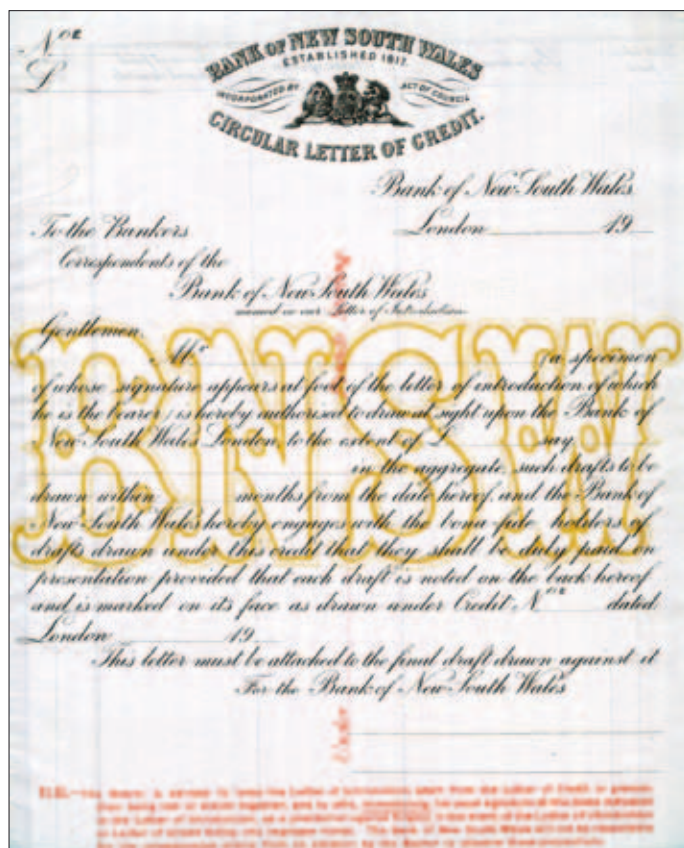 Nᵒᴿ
£
BANK OF NEW SOUTH WALES
ESTABLISHED 1817.
INCORPORATED BY ACT OF COUNCIL
CIRCULAR LETTER OF CREDIT.
Bank of New South Wales
London 19
To the Bankers
Correspondents of the
Bank of New South Wales
named in our Letter of Introduction
Gentlemen,
BNSW
Mr (a specimen
of whose signature appears at foot of the letter of introduction of which
he is the bearer) is hereby authorised to draw at sight upon the Bank of
New South Wales London, to the extent of £ say
in the aggregate, such drafts to be
drawn within months from the date hereof, and the Bank of
New South Wales hereby engages with the bona-fide holders of
drafts drawn under this credit that they shall be duly paid on
presentation provided that each draft is noted on the back hereof
and is marked on its face as drawn under Credit Nᵒᴿ dated
London 19
This letter must be attached to the final draft drawn against it
For the Bank of New South Wales
Under